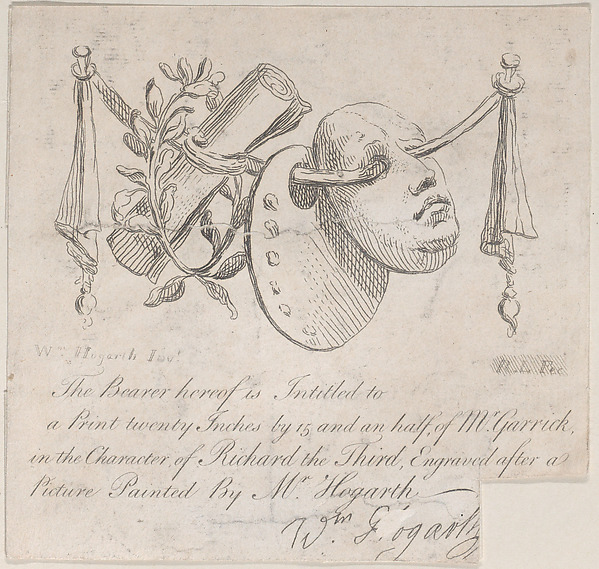 Wm Hogarth Inv!
The Bearer hereof is Intitled to
a Print twenty Inches by 15 and an half, of Mr Garrick,
in the Character, of Richard the Third, Engraved after a
Picture Painted By Mr Hogarth
Wm Hogarth